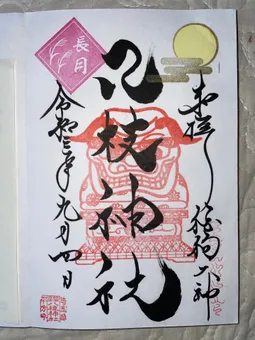 奉拝 大神
日枝神社
長月
令和三年九月四日